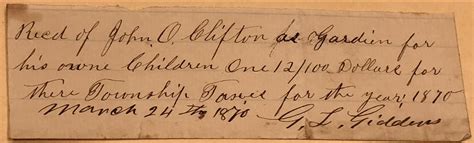 Recd of John O. Clifton as Gardien for
his owne Children One 12/100 Dollars for
there Township Taxes for the year, 1870
March 24th 1870
G. L. Giddens